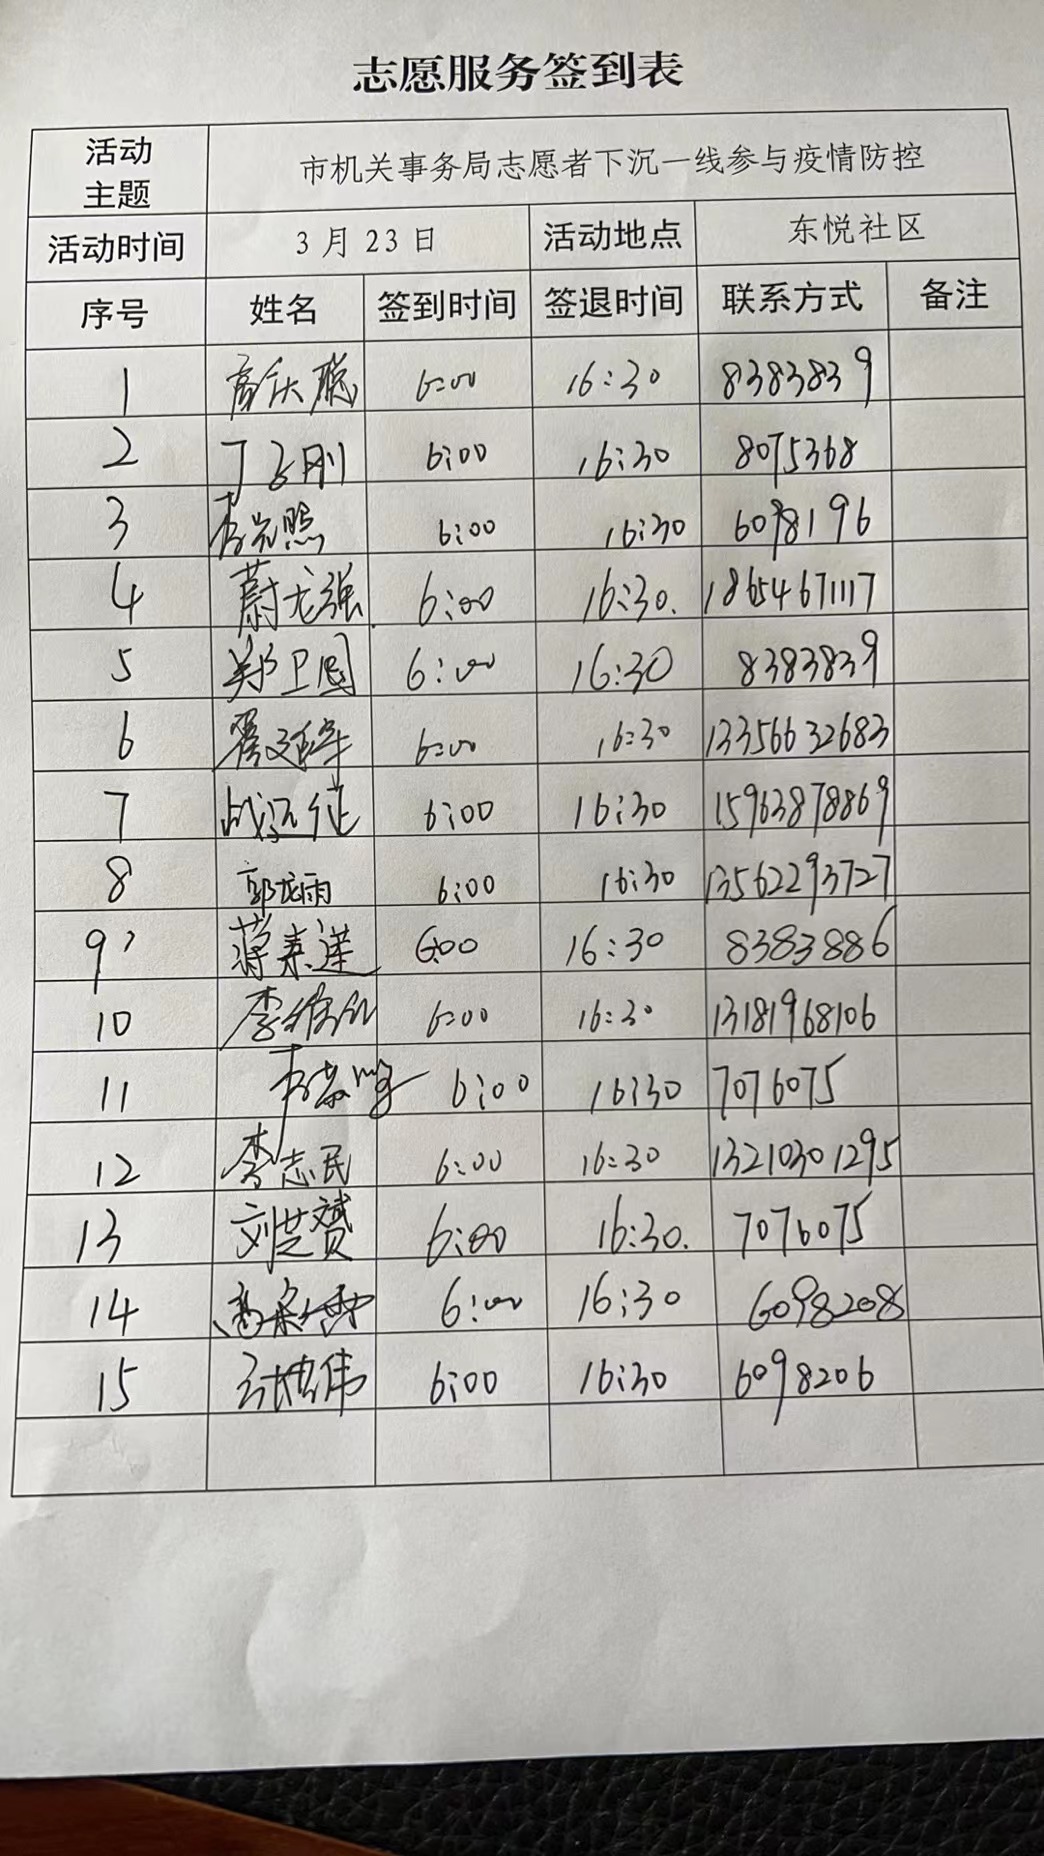 志愿服务签到表
活动主题 市机关事务局志愿者下沉一线参与疫情防控
活动时间 3月23日 活动地点 东悦社区
序号 姓名 签到时间 签退时间 联系方式 备注
1 6:00 16:30 8383839
2 丁 刚 6:00 16:30 8075368
3 照 6:00 16:30 6098196
4 蔚龙强 6:00 16:30. 18654671117
5 郑卫国 6:00 16:30 8383839
6 6:00 16:30 13356632683
7 战沉征 6:00 16:30 15963878869
8 郭龙雨 6:00 16:30 13562293727
9 蒋素莲 6:00 16:30 8383886
10 李 6:00 16:30 13181968106
11 6:00 16:30 7076075
12 李志民 6:00 16:30 13210301295
13 刘芝赟 6:00 16:30. 7076075
14 6:00 16:30 6098208
15 伟 6:00 16:30 6098206